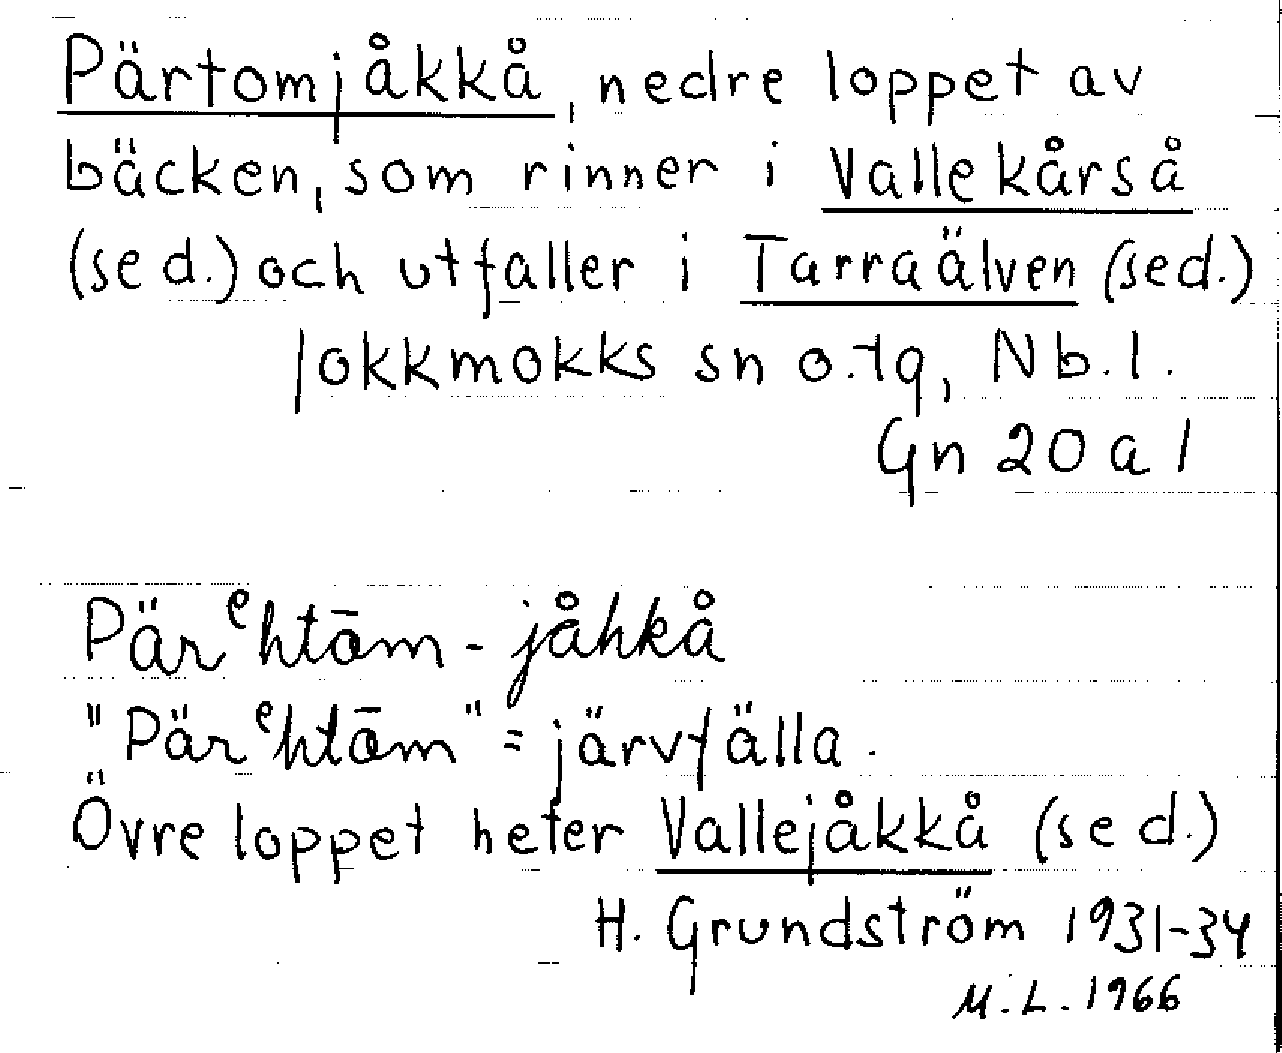 Pärtomjåkkå, nedre loppet av
bäcken, som rinner i Vallekårså
(se d.) och utfaller i Tarraälven (se d.)
Jokkmokks sn o. tg, Nb. l.
Gn 20 a 1
Pärᵉhtām-jåhkå
"Pärᵉhtām" = järvfälla.
Övre loppet heter Vallejåkkå (se d.)
H. Grundström 1931-34
M. L. 1966